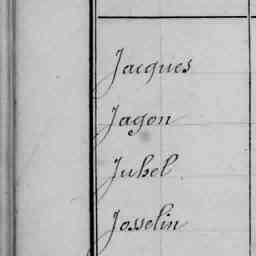 Jacques
Jagon
Juhel
Josselin